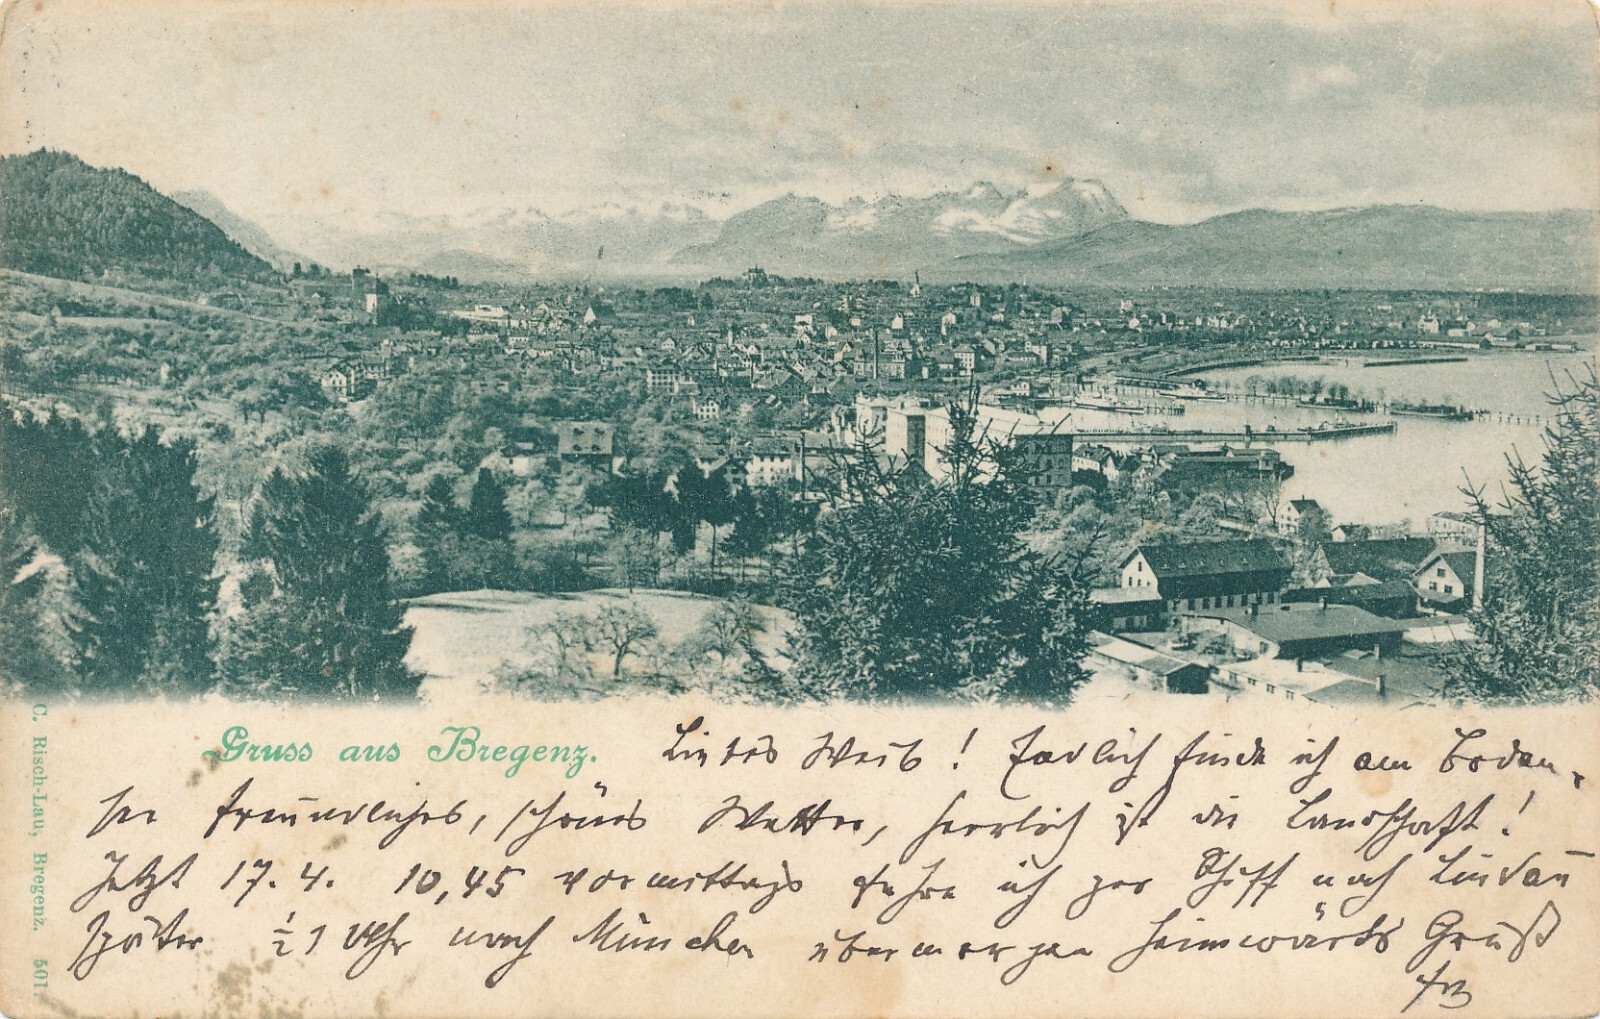 Gruss aus Bregenz.
Liebes Weib! Endlich finde ich am Boden-
see freundliches, schönes Wetter, herrlich ist die Landschaft!
Jetzt 17.4. 10,45 vormittags fahre ich per Schiff nach Lindau
später ½1 Uhr nach München übermorgen heimwärts Gruß
C. Risch-Lau, Bregenz. 501.